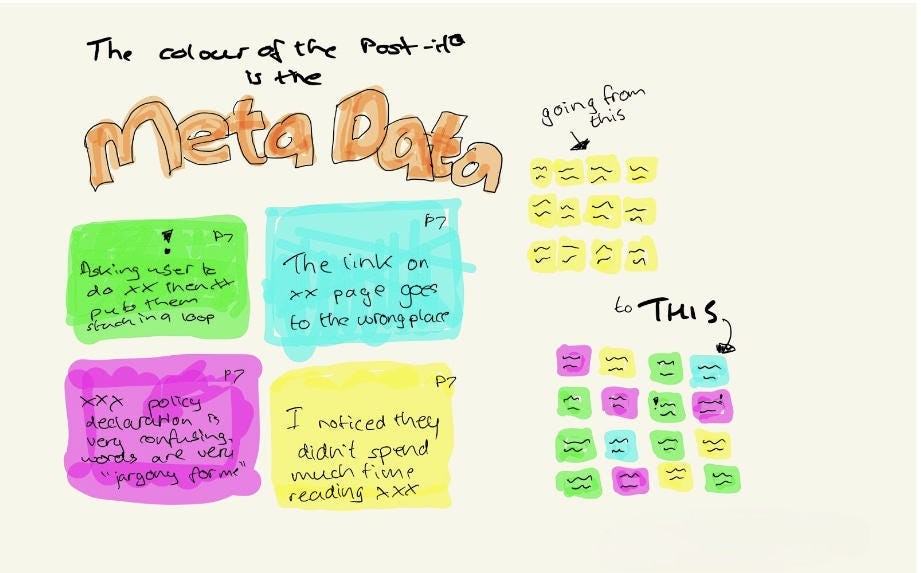 The colour of the Post-its
is the
Meta Data
going from
this
!
P7
Asking user to
do xx then
puts them
stuck in a loop
P7
The link on
xx page goes
to the wrong place
P7
xxx policy
declaration is
very confusing.
words are very
"jargony for me"
P7
I noticed they
didn't spend
much time
reading xxx
to THIS